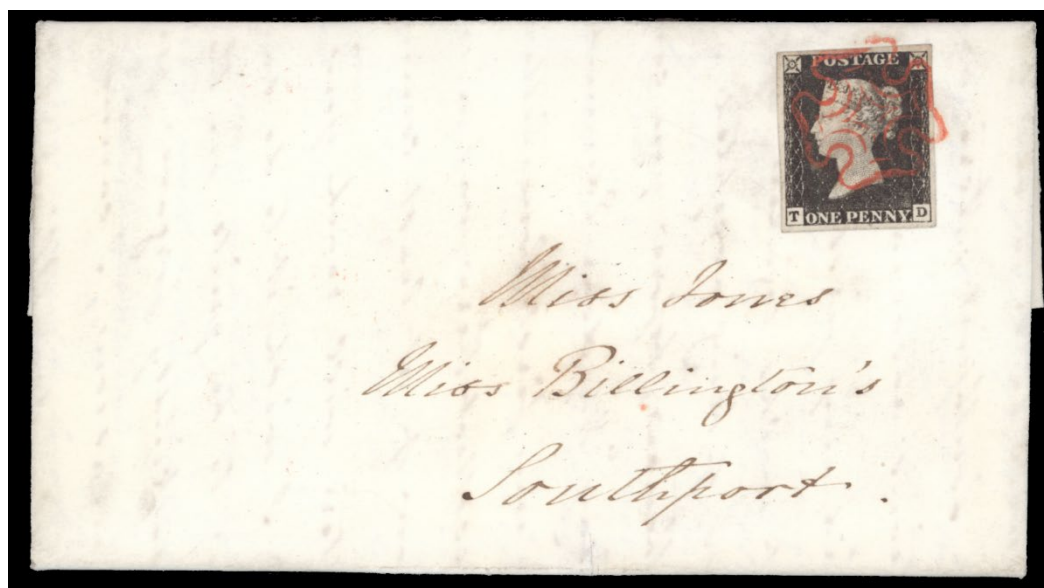 POSTAGE
T ONE PENNY D
Miss Jones
Miss Billington's
Southport.